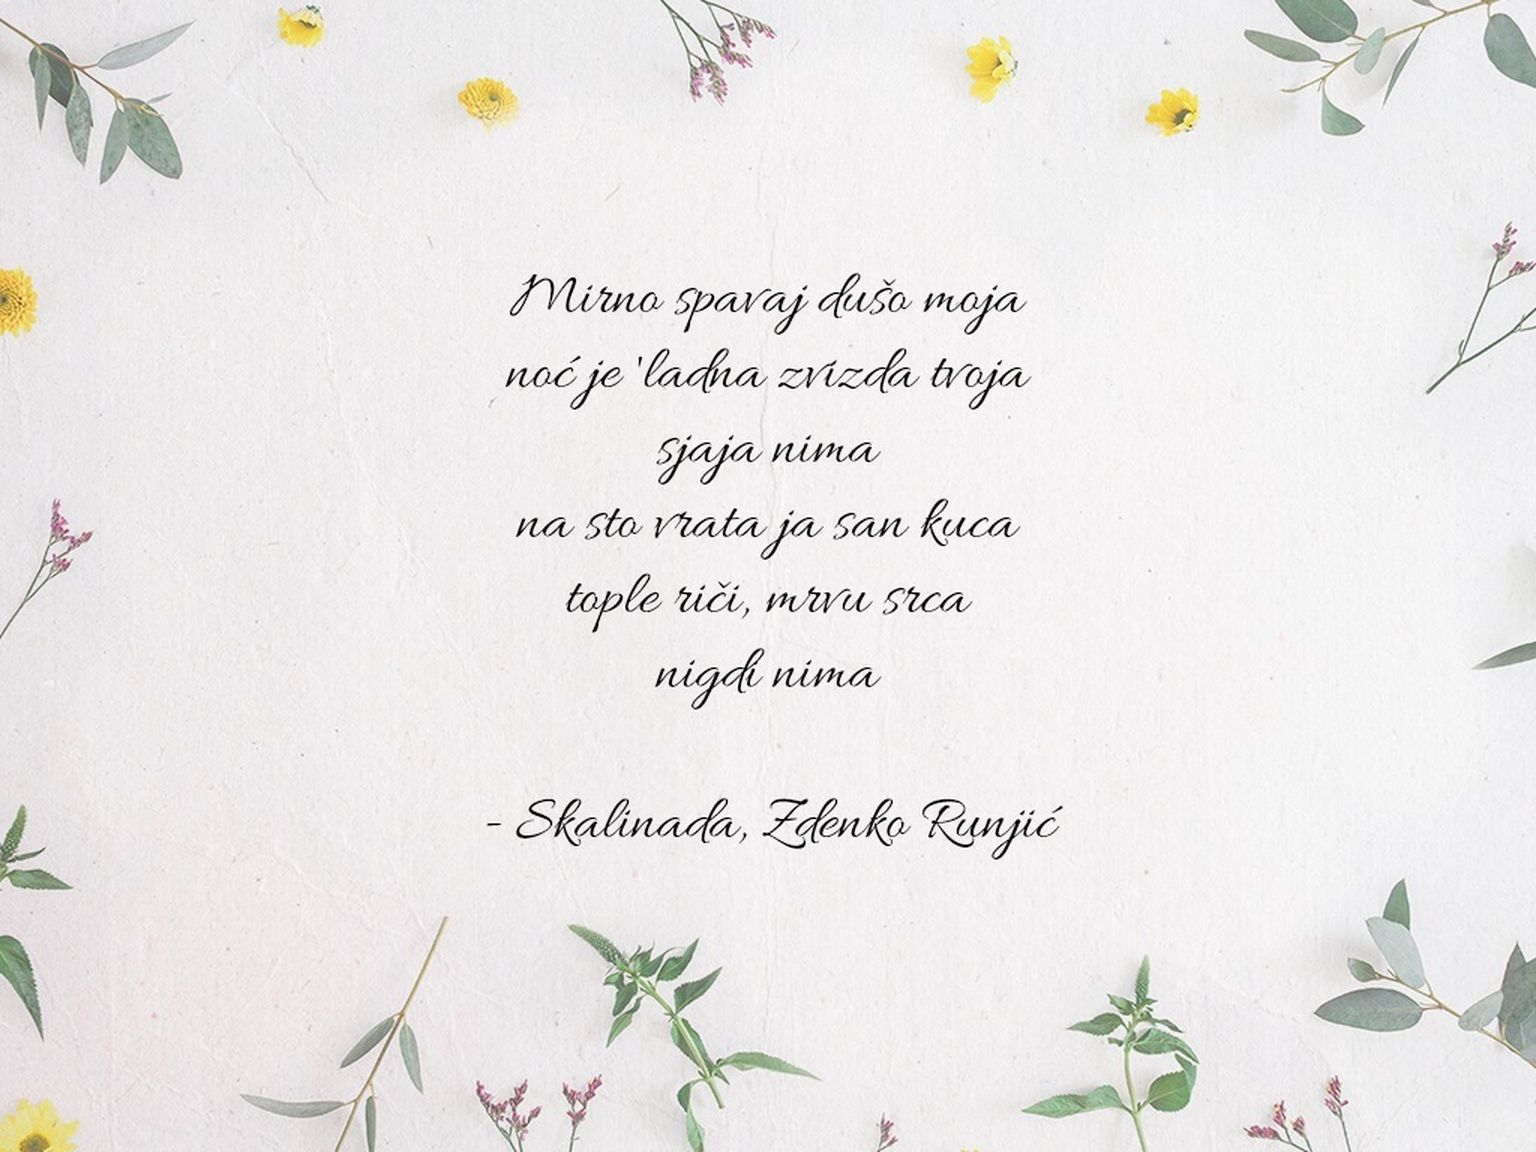 Mirno spavaj dušo moja
noć je 'ladna zvizda tvoja
sjaja nima
na sto vrata ja san kuca
tople riči, mrvu srca
nigdi nima
- Skalinada, Zdenko Runjić